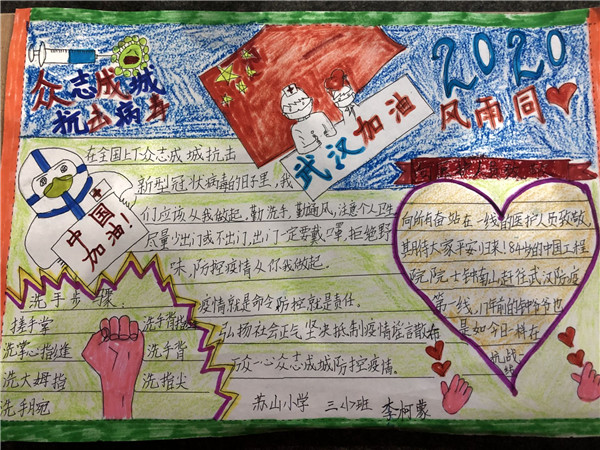 众志成城
抗击病毒
武汉加油
2020
风雨同
中国
加油!
在全国上下众志成城抗击
新型冠状病毒的日子里,我
们应该从我做起,勤洗手,勤通风,注意个人卫生
尽量少出门或不出门,出门一定要戴口罩,拒绝野
味,防控疫情从你我做起。
疫情就是命令防控就是责任。
弘扬社会正气坚决抵制疫情谣言散布
万众一心众志成城防控疫情。
苏山小学 三(2)班 李柯蒙
洗手步骤
搓手掌 洗手背指缝
洗掌心指缝 洗手背
洗大姆指 洗指尖
洗手腕
向所有奋站在一线的医护人员致敬,
期待大家平安归来!84岁的中国工程
院院士钟南山赶往武汉防疫
第一线,17年前的钟爷爷也
是如今日一样在
抗战一
线